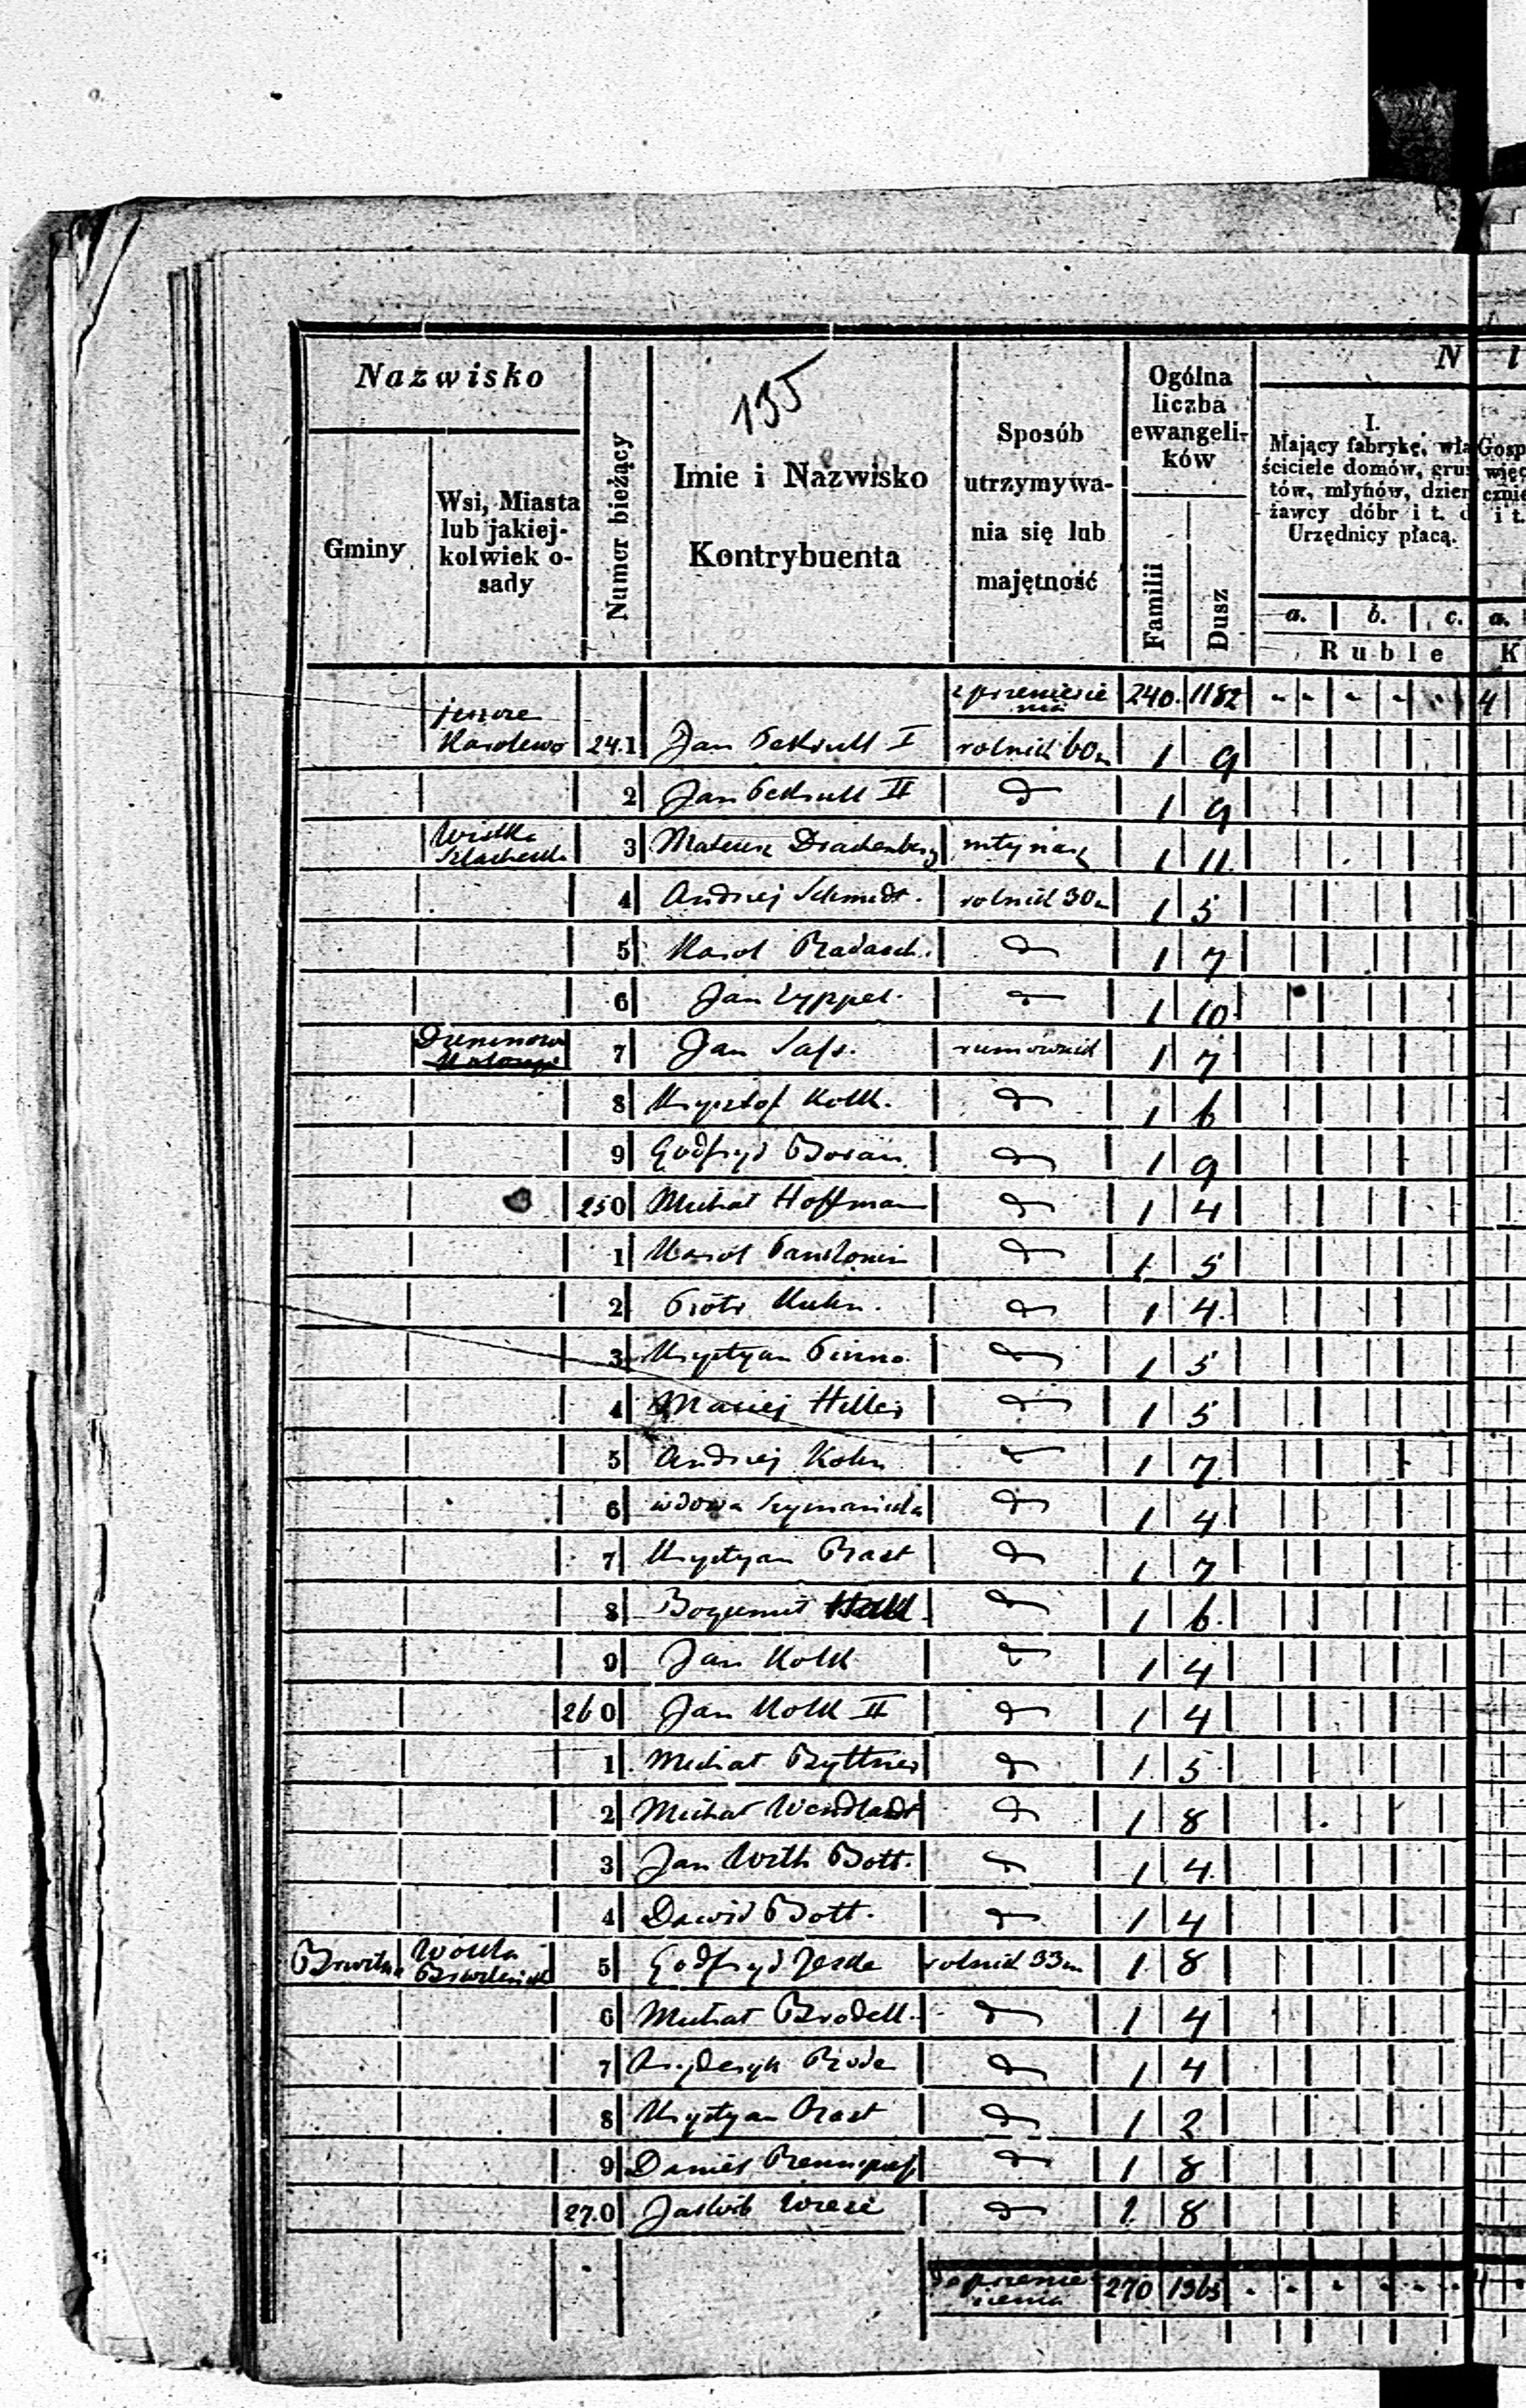 Nazwisko
Gminy
Wsi, Miasta
lub jakiej-
kolwiek o-
sady
Numer bieżący
135
Imie i Nazwisko
Kontrybuenta
Sposób
utrzymywa-
nia się lub
majętność
Ogólna
liczba
ewangeli-
ków
Familii
Dusz
N
I.
Mający fabrykę, wła
ściciele domów, grun
tów, młynów, dzier
żawcy dóbr i t. d
Urzędnicy płacą.
a. b. c.
Ruble
Gosp
więc
cznie
i t.
a.
K
z przeniesie
nia 240. 1182 4
jeszcze
Karolewo 241 Jan I rolnik 60m 1 9
2 Jan II d 1 9
Szlachecka 3 Mateusz Drachenberg młynarz 1 11
4 Andrzej Schmidt. rolnik 30m 1 5
5 Karol Radasch. d 1 7
6 Jan Lyppel. d 1 10
7 Jan Sass. 1 7
8 Krysztof Kolk. d 1 6
9 Godfryd d 1 9
250 Michał Hoffman d 1 4
1 Karol d 1 5
2 Piotr Kuhn. d 1 4
3 Krystyan Pinno. d 1 5
4 Maciej Hiller d 1 5
5 Andrzej Kohn d 1 7
6 wdowa d 1 4
7 Krystyan Rast d 1 7
8 Bogumił d 1 6
9 Jan Kolk d 1 4
260 Jan Kolk II d 1 4
1 Michał Ryttner d 1 5
2 Michał Wendlandt d 1 8
3 Jan Wilh Bott. d 1 4
4 Dawid Bott. d 1 4
Wólka 5 Godfryd Jeske rolnik 33m 1 8
6 Michał Brodell. d 1 4
7 Fryderyk Rode d 1 4
8 Krystyan Rast d 1 2
9 Daniel d 1 8
270 Jakób d 1 8
do przenie
sienia 270 1365